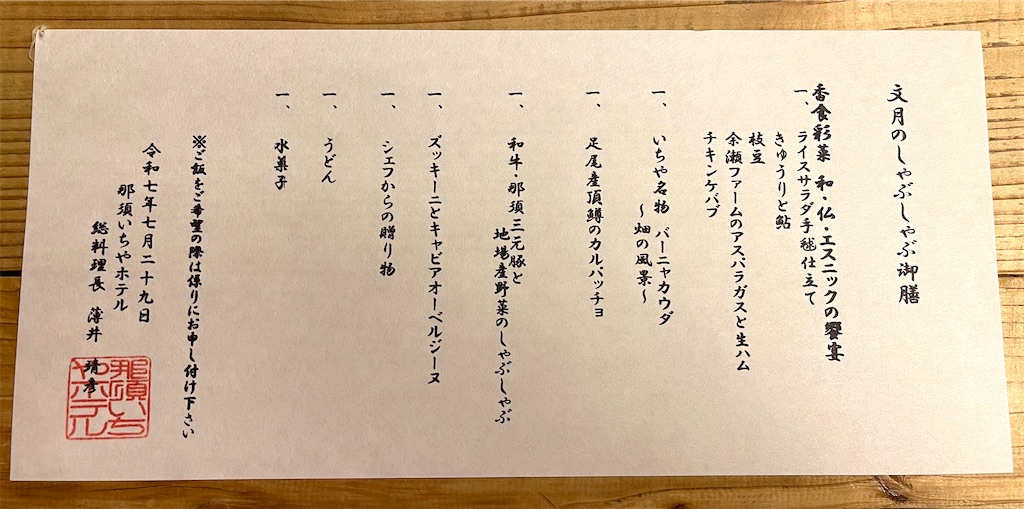 文月のしゃぶしゃぶ御膳
香食彩菜 和・仏・エスニックの饗宴
一、ライスサラダ手毬仕立て
きゅうりと鮎
枝豆
余瀬ファームのアスパラガスと生ハム
チキンケバブ
一、いちや名物 バーニャカウダ
～畑の風景～
一、足尾産頂鱒のカルパッチョ
一、和牛・那須三元豚と
地場産野菜のしゃぶしゃぶ
一、ズッキーニとキャビアオーベルジーヌ
一、シェフからの贈り物
一、うどん
一、水菓子
※ご飯をご希望の際は係りにお申し付け下さい
令和七年七月二十九日
那須いちやホテル
総料理長 薄井 靖彦
那須いち
やホテル